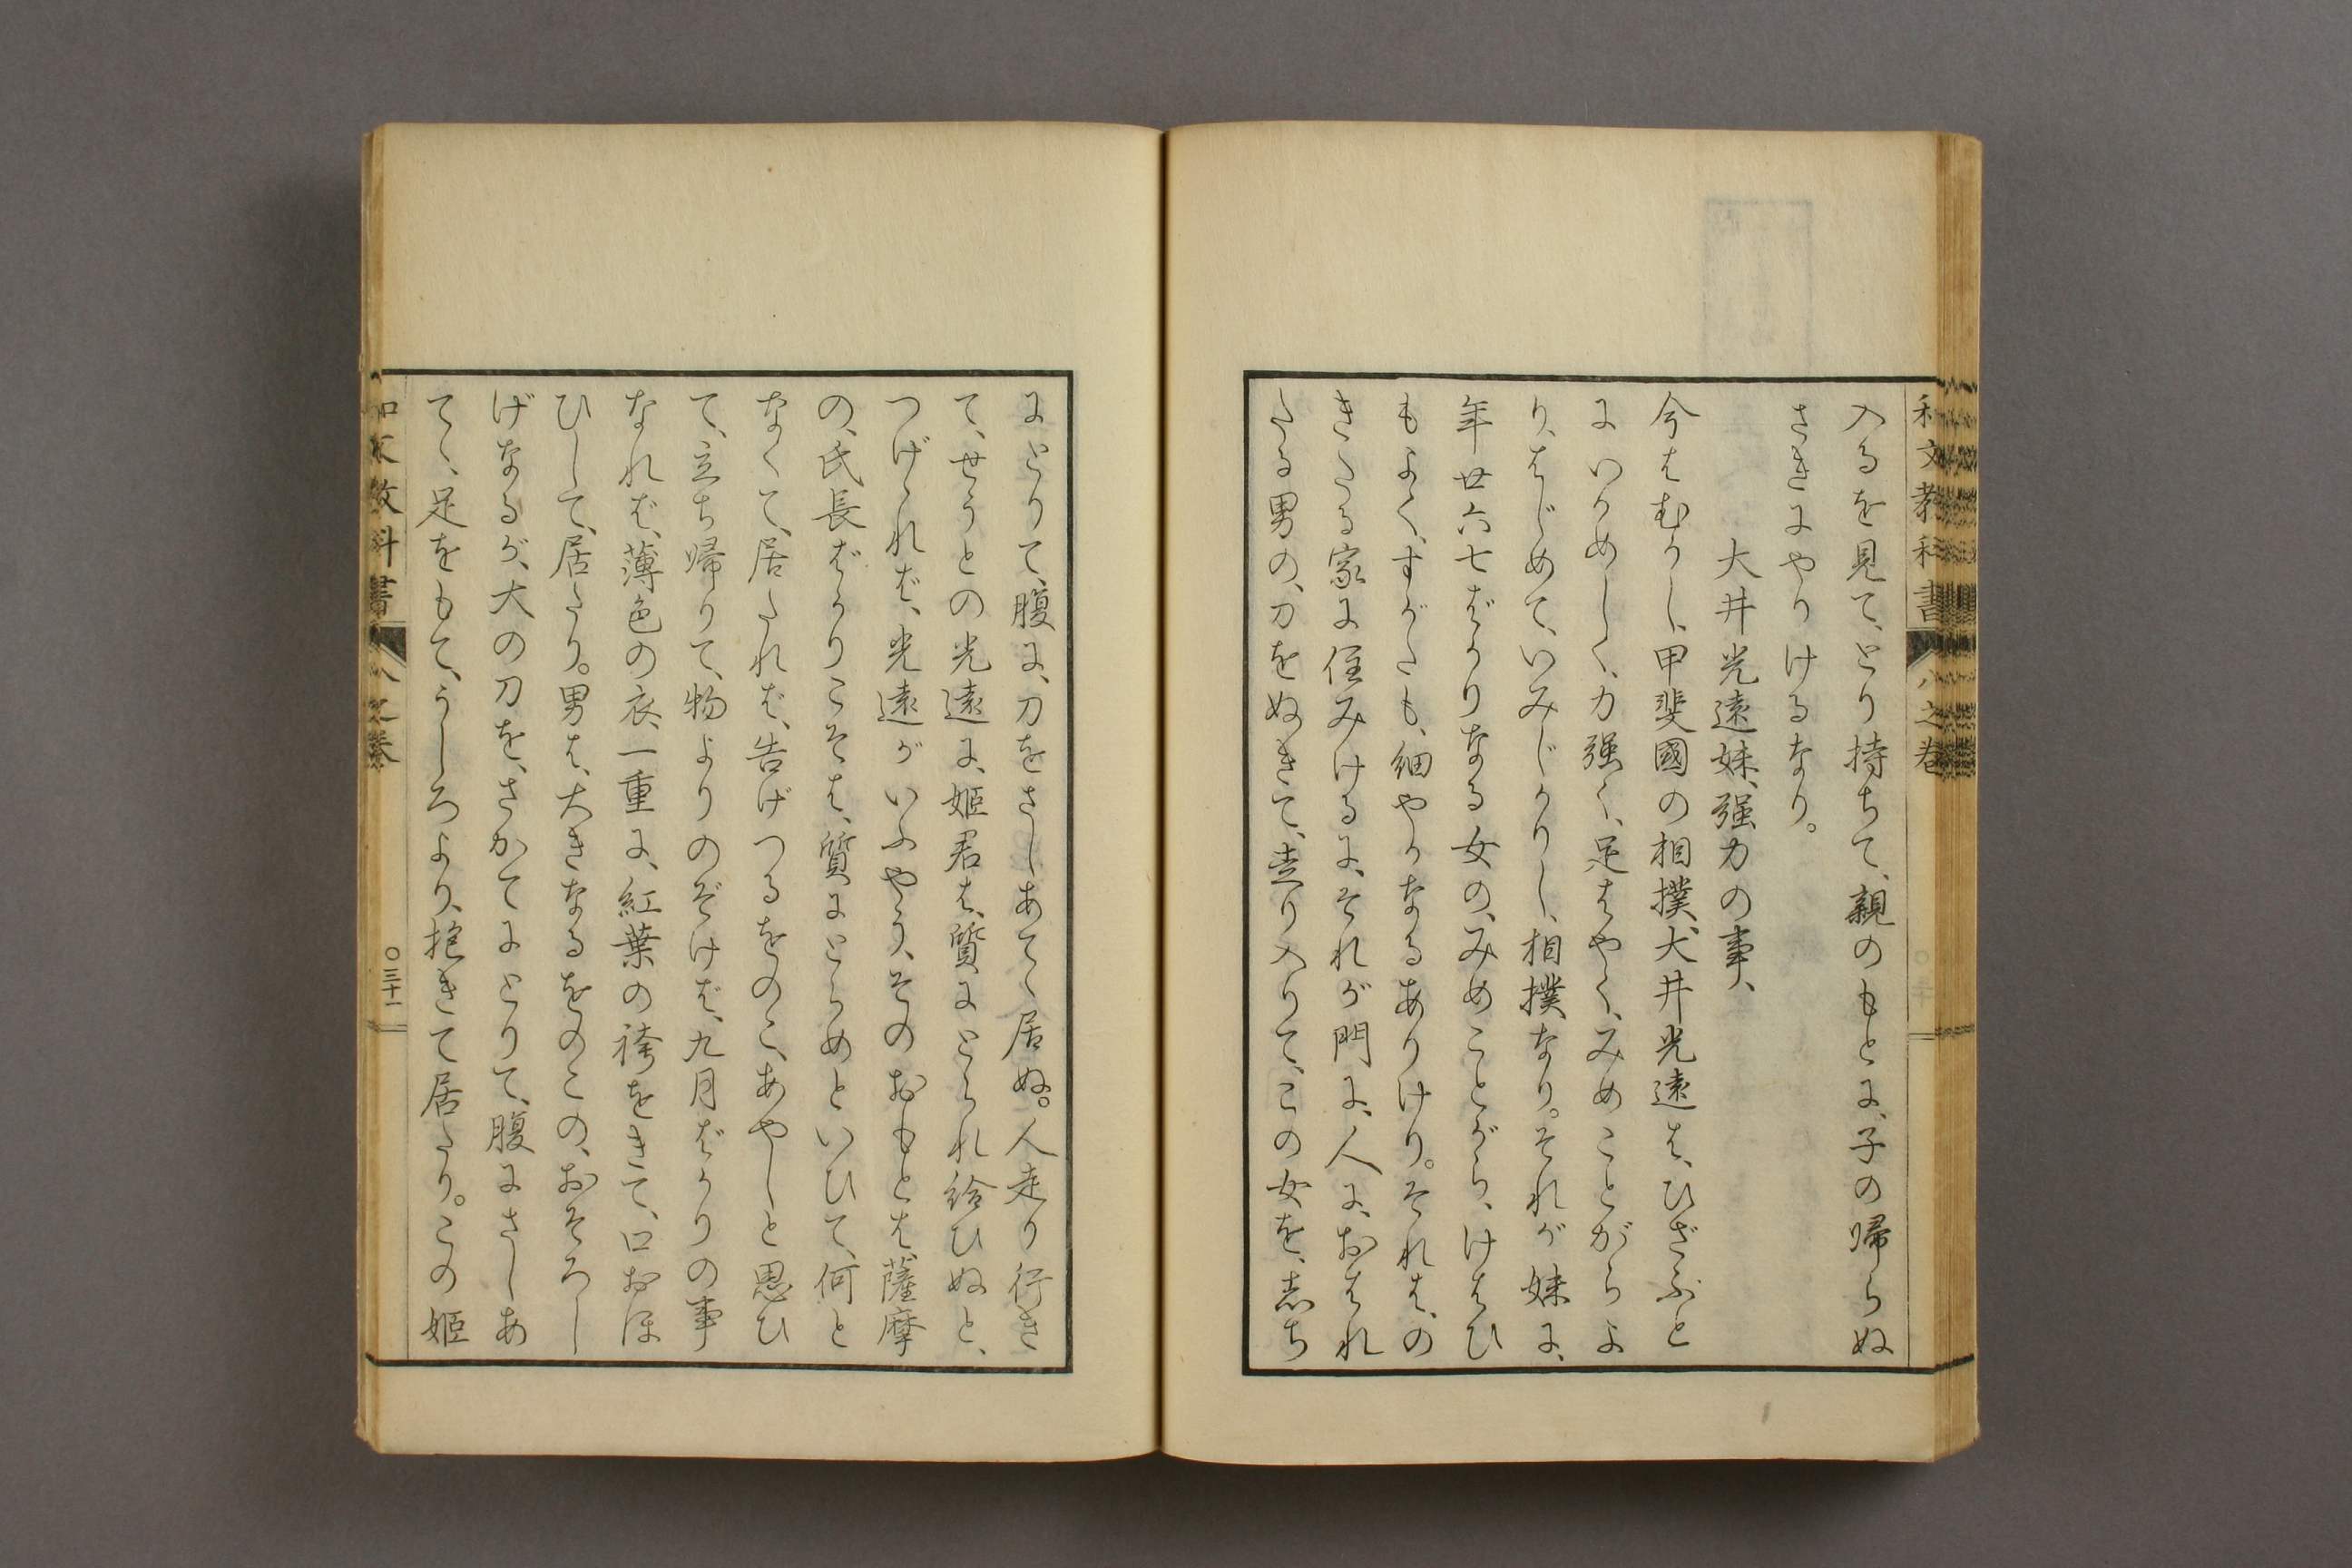 和文教科書 八之卷
入るを見て、とり持ちて、親のもとに、子の帰らぬ
さきにやりけるなり。
大井光遠妹、强力の事、
今はむかし、甲斐國の相撲、大井光遠は、ひざふと
にいかめしく、力强く、足はやく、みめことがらよ
り、はじめて、いみじかりし、相撲なり。それが妹に、
年廿六七ばかりなる女の、みめことがら、けはひ
もよく、すがたも、細やかなるありけり。それは、の
きたる家に住みけるに、それが門に、人に、おはれ
たる男の、刀をぬきて、走り入りて、この女を、志ち
にとりて、腹に、刀をさしあてゝ居ぬ。人走り行き
て、せうとの光遠に、姫君は、質にとられ給ひぬと、
つげゝれば、光遠がいふやう、そのおもとは、薩摩
の、氏長ばかりこそは、質にとらめといひて、何と
なくて、居たれば、告げつるをのこ、あやしと思ひ
て、立ち帰りて、物よりのぞけば、九月ばかりの事
なれば、薄色の衣、一重に、紅葉の袴をきて、口おほ
ひして、居たり。男は、大きなるをのこの、おそろし
げなるが、大の刀を、さかてにとりて、腹にさしあ
てゝ、足をもて、うしろより、抱きて居たり。この姫
和文教科書 八之卷 〇三十一